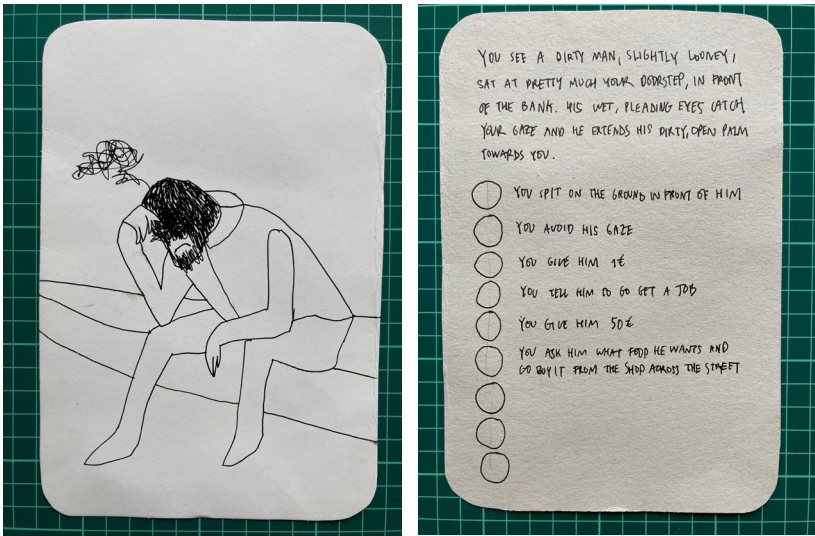 YOU SEE A DIRTY MAN, SLIGHTLY LOONEY,
SAT AT PRETTY MUCH YOUR DOORSTEP, IN FRONT
OF THE BANK. HIS WET, PLEADING EYES CATCH
YOUR GAZE AND HE EXTENDS HIS DIRTY, OPEN PALM
TOWARDS YOU.
YOU SPIT ON THE GROUND IN FRONT OF HIM
YOU AVOID HIS GAZE
YOU GIVE HIM 1€
YOU TELL HIM TO GO GET A JOB
YOU GIVE HIM 50€
YOU ASK HIM WHAT FOOD HE WANTS AND
GO BUY IT FROM THE SHOP ACROSS THE STREET